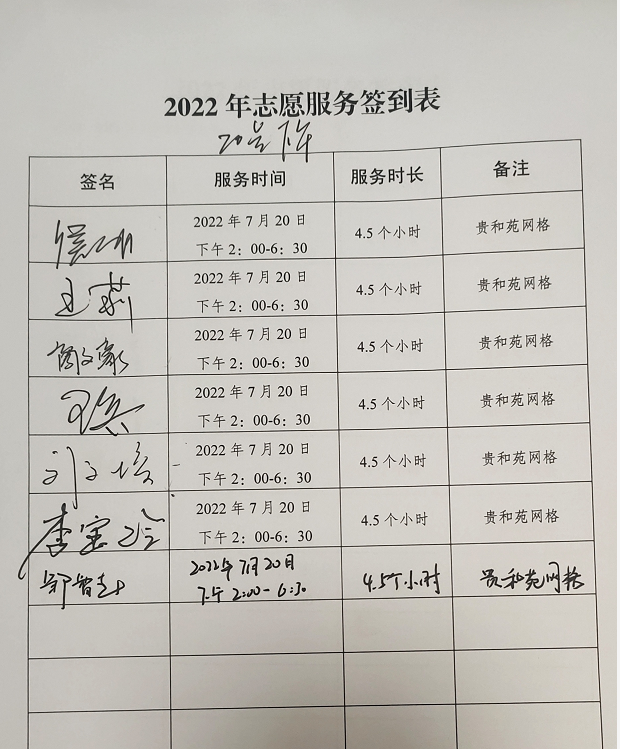 2022 年志愿服务签到表
20号下午
签名 服务时间 服务时长 备注
2022 年 7 月 20 日
下午 2：00-6：30 4.5 个小时 贵和苑网格
王莉 2022 年 7 月 20 日
下午 2：00-6：30 4.5 个小时 贵和苑网格
2022 年 7 月 20 日
下午 2：00-6：30 4.5 个小时 贵和苑网格
2022 年 7 月 20 日
下午 2：00-6：30 4.5 个小时 贵和苑网格
刘文培 2022 年 7 月 20 日
下午 2：00-6：30 4.5 个小时 贵和苑网格
李宝玲 2022 年 7 月 20 日
下午 2：00-6：30 4.5 个小时 贵和苑网格
2022年7月20日
下午 2:00-6:30 4.5个小时 贵和苑网格